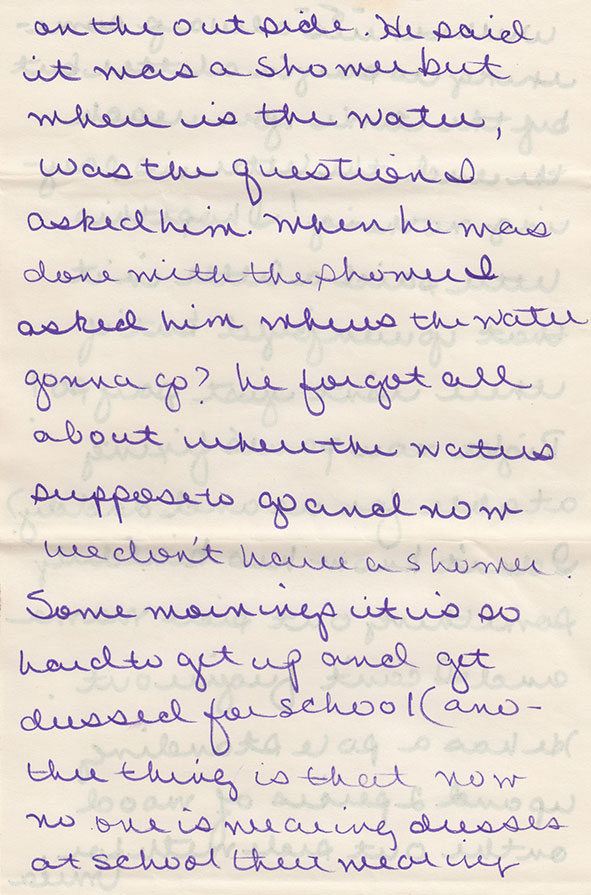 on the outside. He said
it was a shower but
where is the water,
was the question I
asked him. When he was
done with the shower I
asked him wheres the water
gonna go? he forgot all
about where the waters
suppose to go and now
we don't have a shower.
Some mornings it is so
hard to get up and get
dressed for school (ano-
ther thing is that now
no one is wearing dresses
at school their wearing